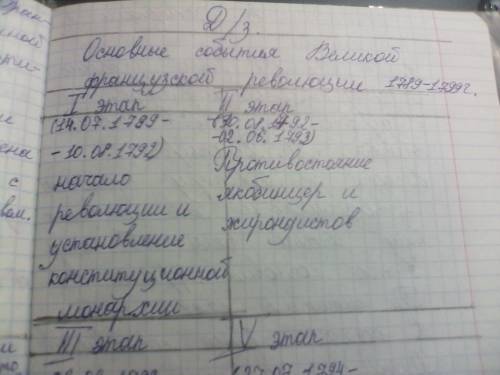 Д/з.
Основные события Великой
французской революции 1789-1799г.
I этап
(14.07.1789-
- 10.08.1792)
начало
революции и
установление
конституционной
монархии
II этап
(10.08.1792-
-02.06.1793)
Противостояние
якобинцев и
жирондистов
III этап
V этап